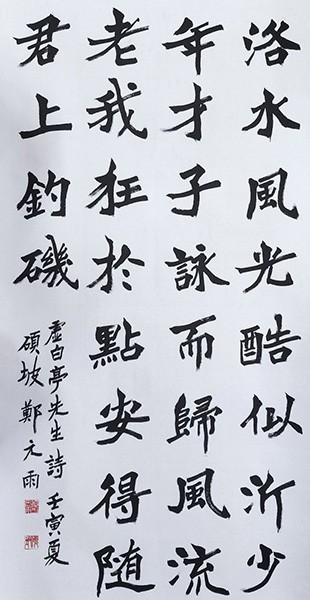 洛水風光酷似沂少
年才子詠而歸風流
老我狂於點安得随
君上釣磯
虛白亭先生詩 壬寅夏
碩坡 鄭元雨